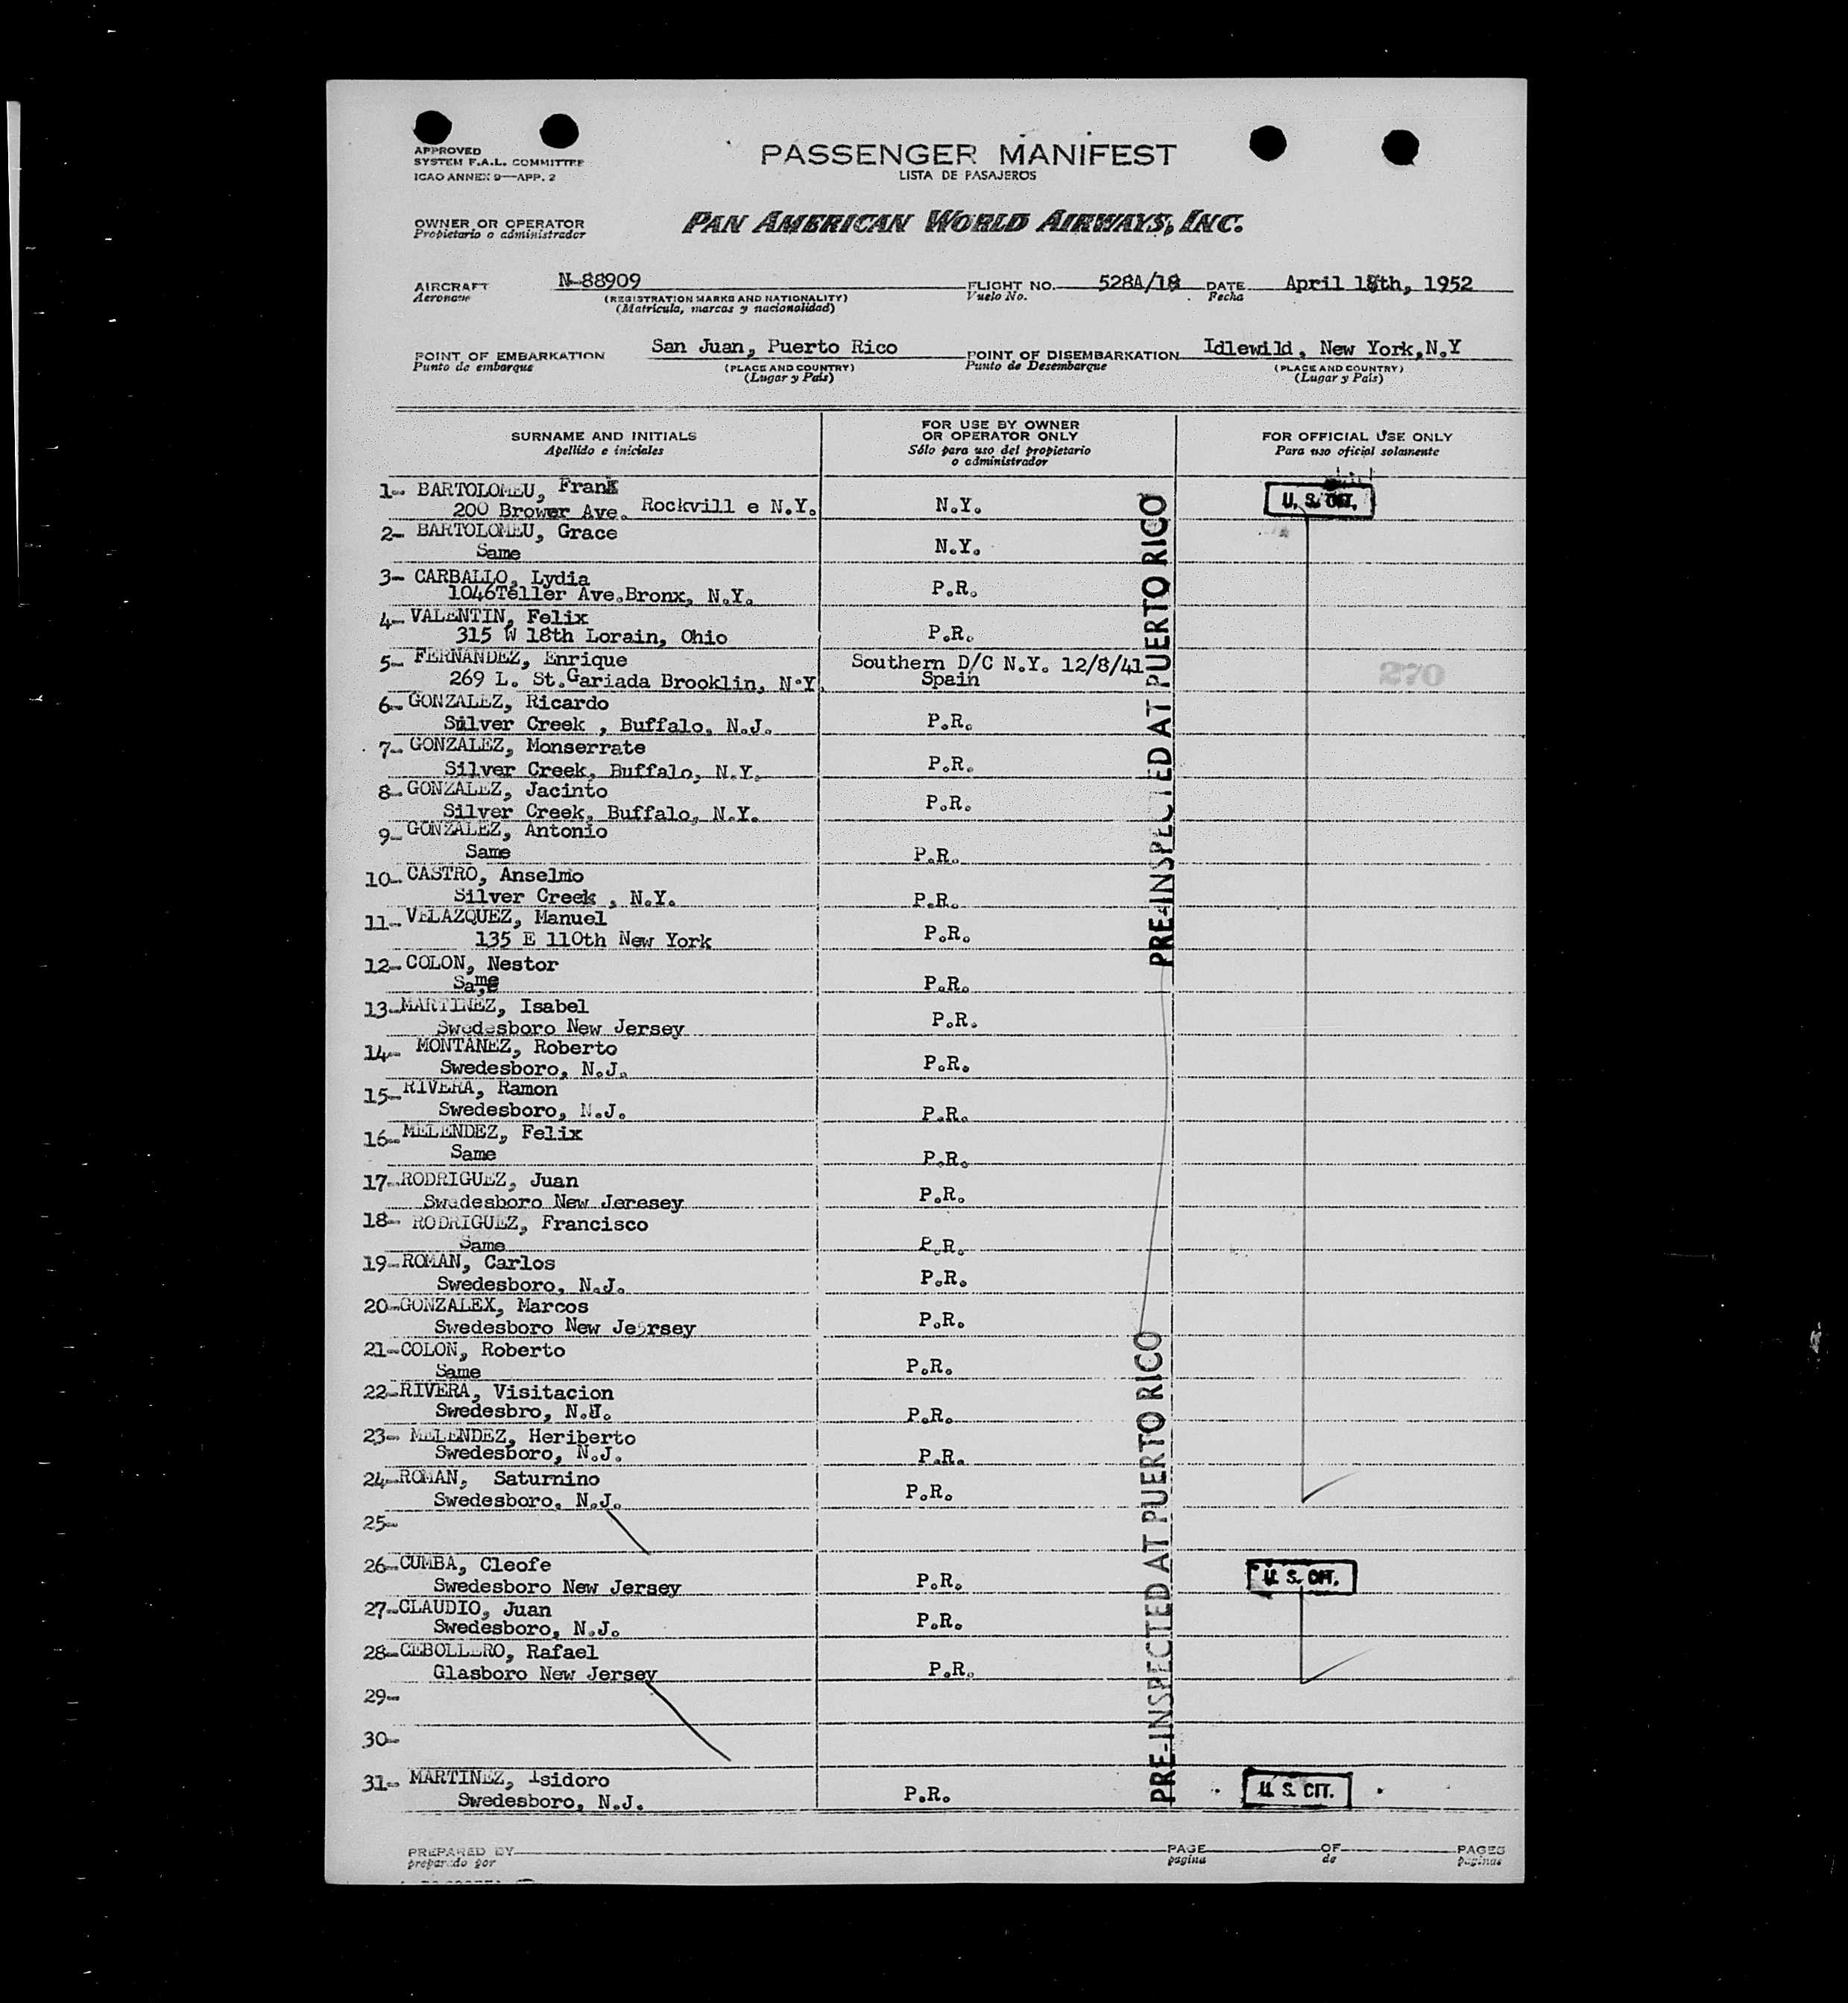 APPROVED
SYSTEM F.A.L. COMMITTEE
ICAO ANNEX 9—APP. 2
PASSENGER MANIFEST
LISTA DE PASAJEROS
OWNER OR OPERATOR
Propietario o administrador
PAN AMERICAN WORLD AIRWAYS, INC.
AIRCRAFT N-88909 FLIGHT NO. 528A/18 DATE April 18th, 1952
Aeronave (REGISTRATION MARKS AND NATIONALITY) Vuelo No. Fecha
(Matrícula, marcas y nacionalidad)
POINT OF EMBARKATION San Juan, Puerto Rico POINT OF DISEMBARKATION Idlewild, New York,N.Y
Punto de embarque (PLACE AND COUNTRY) Punto de Desembarque (PLACE AND COUNTRY)
(Lugar y País) (Lugar y País)
SURNAME AND INITIALS
Apellido e iniciales
FOR USE BY OWNER
OR OPERATOR ONLY
Sólo para uso del propietario
o administrador
FOR OFFICIAL USE ONLY
Para uso oficial solamente
1- BARTOLOMEU, Frank
200 Brower Ave. Rockvill e N.Y. N.Y. U. S. CIT.
2- BARTOLOMEU, Grace
Same N.Y.
3- CARBALLO, Lydia
1046Teller Ave.Bronx, N.Y. P.R.
4- VALENTIN, Felix
315 W 18th Lorain, Ohio P.R.
5- FERNANDEZ, Enrique Southern D/C N.Y. 12/8/41
269 L. St.Gariada Brooklin, N.Y. Spain 270
6- GONZALEZ, Ricardo
Silver Creek , Buffalo, N.J. P.R.
7- GONZALEZ, Monserrate
Silver Creek, Buffalo, N.Y. P.R.
8- GONZALEZ, Jacinto
Silver Creek, Buffalo, N.Y. P.R.
9- GONZALEZ, Antonio
Same P.R.
10- CASTRO, Anselmo
Silver Creek , N.Y. P.R.
11- VELAZQUEZ, Manuel
135 E 110th New York P.R.
12- COLON, Nestor
Same P.R.
13- MARTINEZ, Isabel
Swedesboro New Jersey P.R.
14- MONTANEZ, Roberto
Swedesboro, N.J. P.R.
15- RIVERA, Ramon
Swedesboro, N.J. P.R.
16- MELENDEZ, Felix
Same P.R.
17- RODRIGUEZ, Juan
Swedesboro New Jeresey P.R.
18- RODRIGUEZ, Francisco
Same P.R.
19- ROMAN, Carlos
Swedesboro, N.J. P.R.
20- GONZALEX, Marcos
Swedesboro New Jersey P.R.
21- COLON, Roberto
Same P.R.
22- RIVERA, Visitacion
Swedesbro, N.J. P.R.
23- MELENDEZ, Heriberto
Swedesboro, N.J. P.R.
24- ROMAN, Saturnino
Swedesboro, N.J. P.R.
25-
26- CUMBA, Cleofe
Swedesboro New Jersey P.R. U. S. CIT.
27- CLAUDIO, Juan
Swedesboro, N.J. P.R.
28- CEBOLLERO, Rafael
Glasboro New Jersey P.R.
29-
30-
31- MARTINEZ, Isidoro
Swedesboro, N.J. P.R. U. S. CIT.
PRE-INSPECTED AT PUERTO RICO
PRE-INSPECTED AT PUERTO RICO
PREPARED BY PAGE OF PAGES
preparado por página de páginas